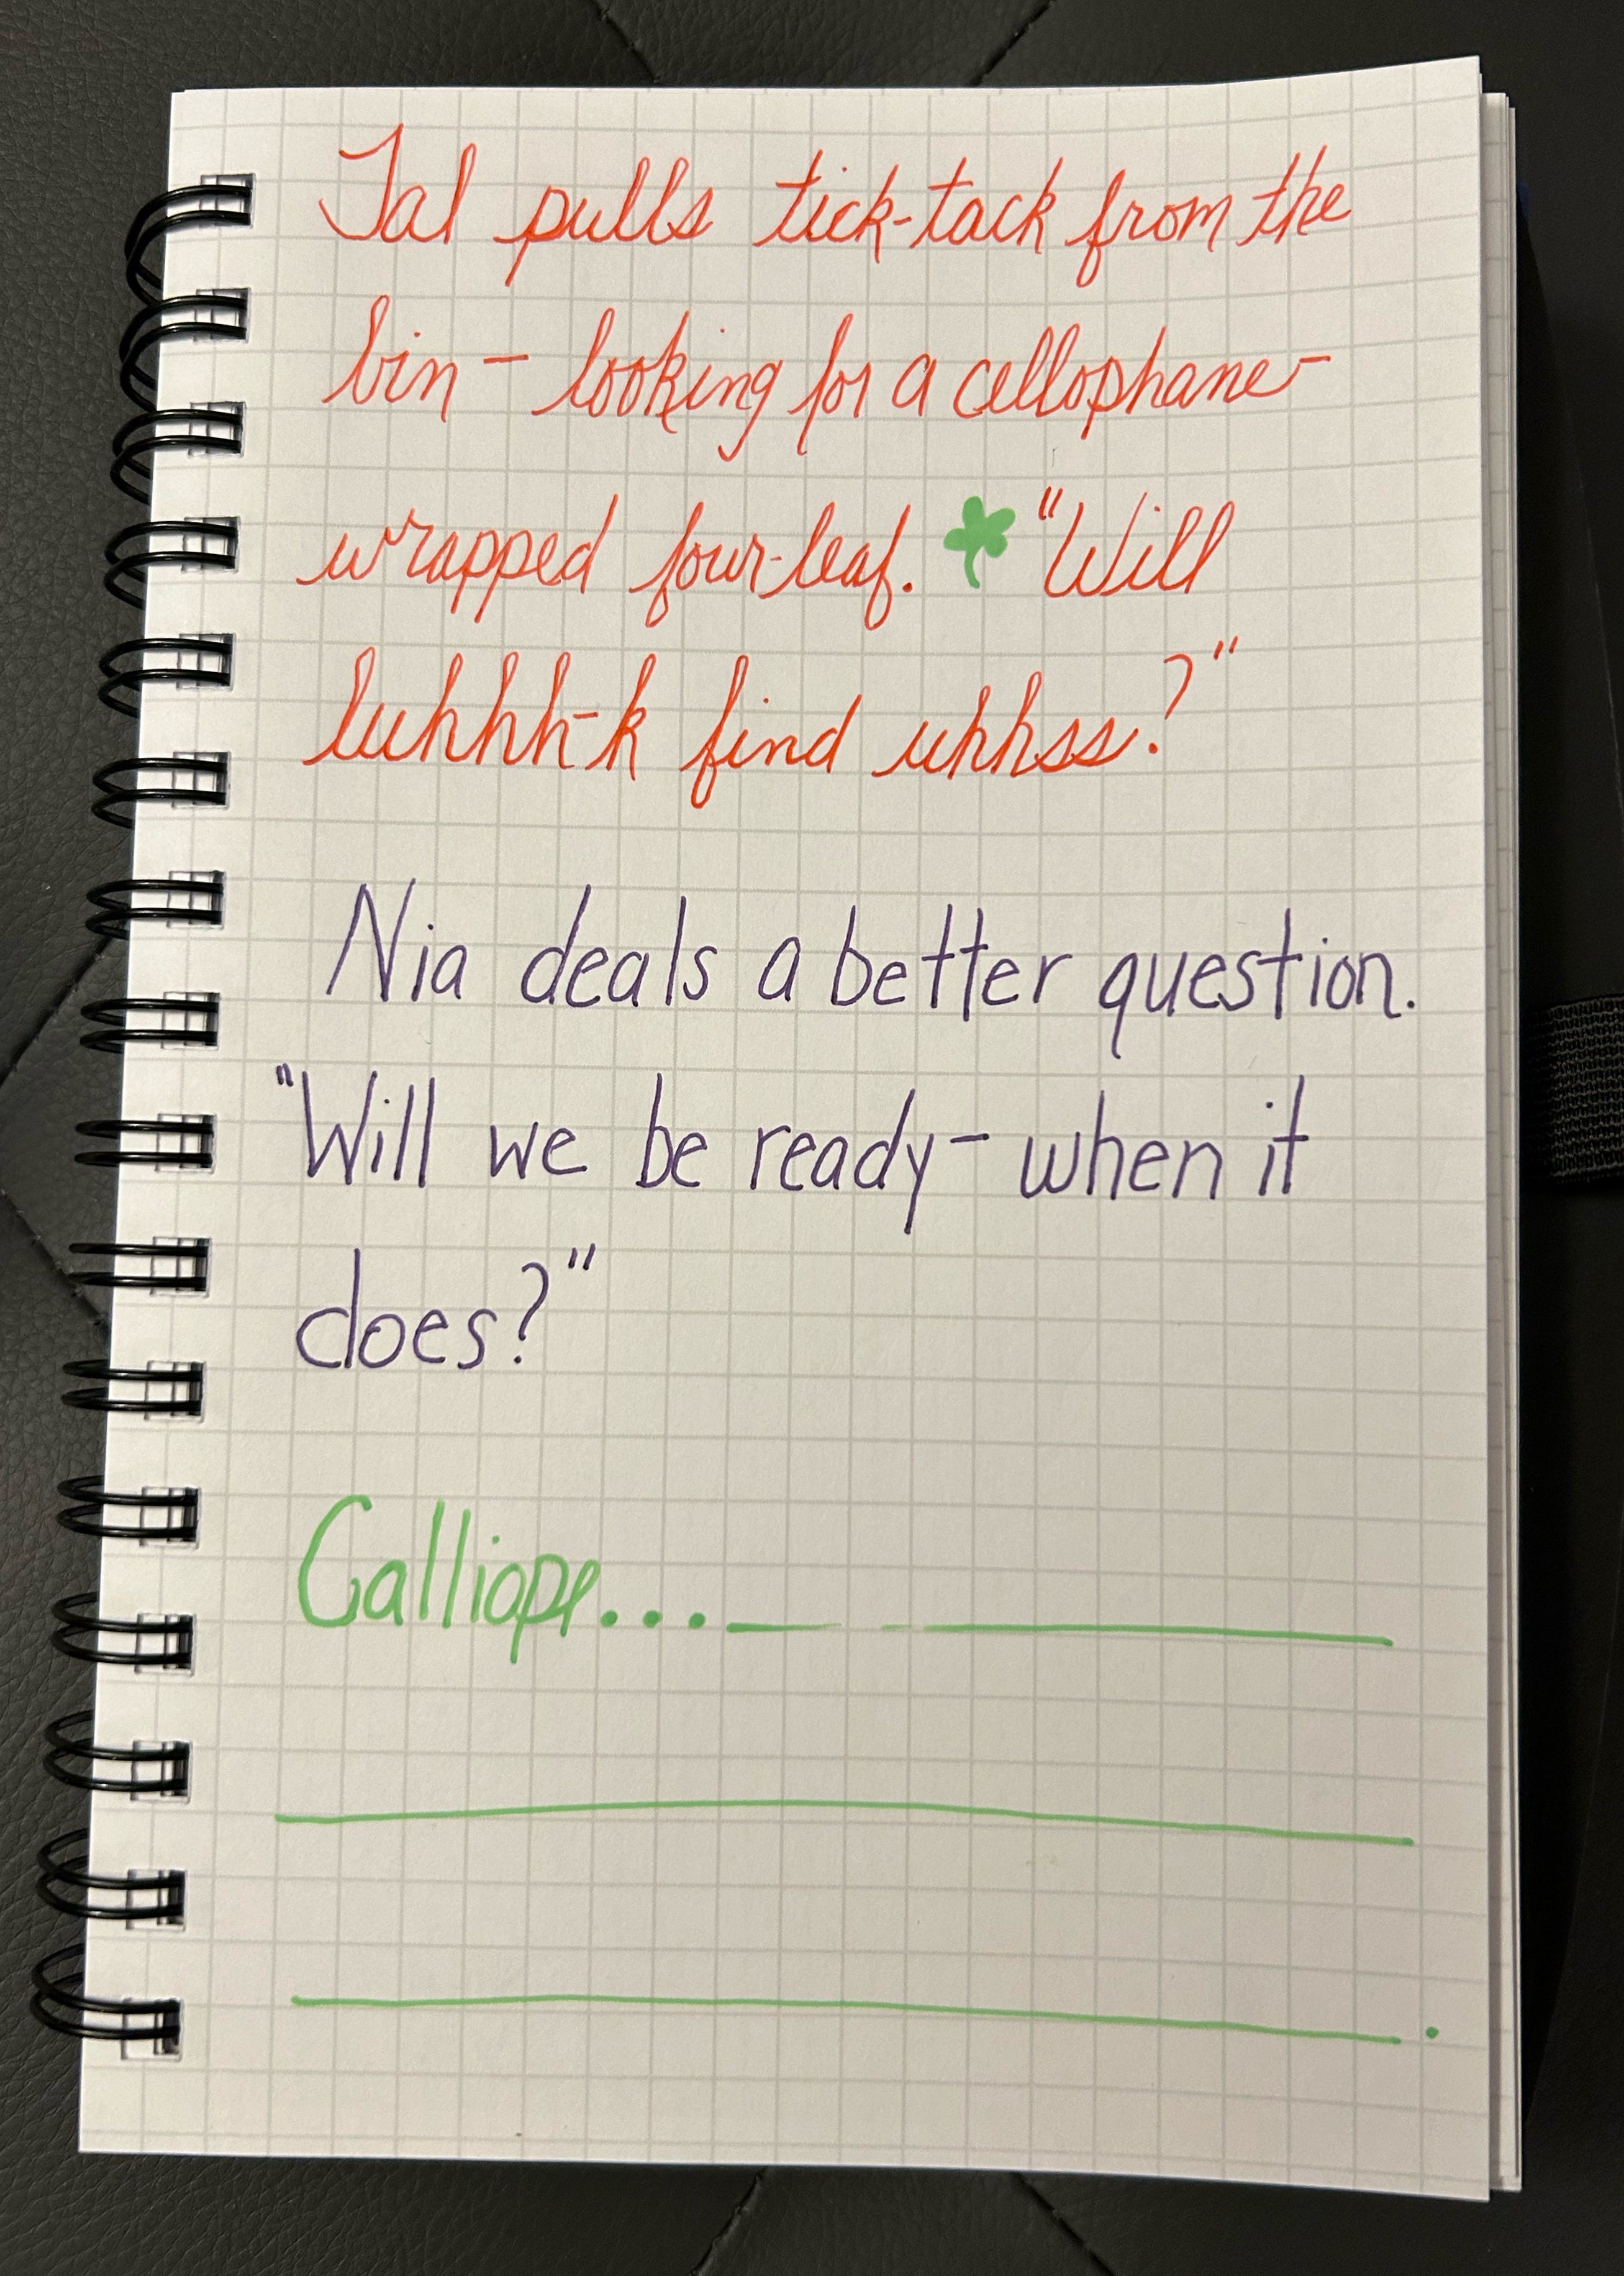 Tal pulls tick-tack from the
bin – looking for a cellophane-
wrapped four-leaf. ☘ "Will
luhhh-k find uhhss?"
Nia deals a better question.
"Will we be ready – when it
does?"
Calliope...___ _ __________
____________________
____________________.